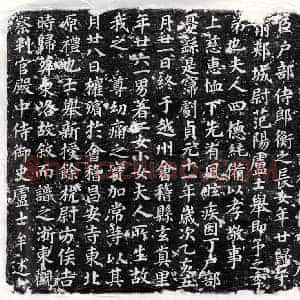 官戶部侍郎衡之長女年廿歸于
前郟城尉范陽盧士舉即予之季
弟也夫人四德純備以孝敬事
上慈惠恤下先有風眩疾因丁戶部
憂緜是劇貞元十一年歲次乙亥五
月廿一日終于越州會稽縣玄真里
年廿六男著二女小夫人所生故
我之尊幼痛之實加常等以其
月廿八日權殯於會稽昌安寺東北
原禮也士舉新授餘杭尉方俟吉
時歸葬東洛故叙而識之浙東觀
察判官殿中侍御史盧士牟述